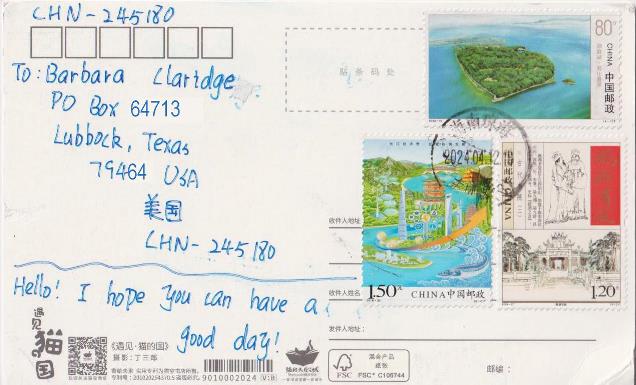 CHN-245180
To: Barbara Claridge
PO Box 64713
Lubbock, Texas
79464 USA
美国
CHN-245180
Hello! I hope you can have a
good day!
贴条码处
80分
CHINA
中国邮政
2024.04.12
1.50元
CHINA中国邮政
中国邮政
CHINA
1.20元
收件人地址:
收件人姓名:
寄件人地址:
邮编:
遇见
猫
国
《遇见·猫的国》
摄影:丁三郎
9010002024
FSC
混合产品
纸张
FSC® C106744